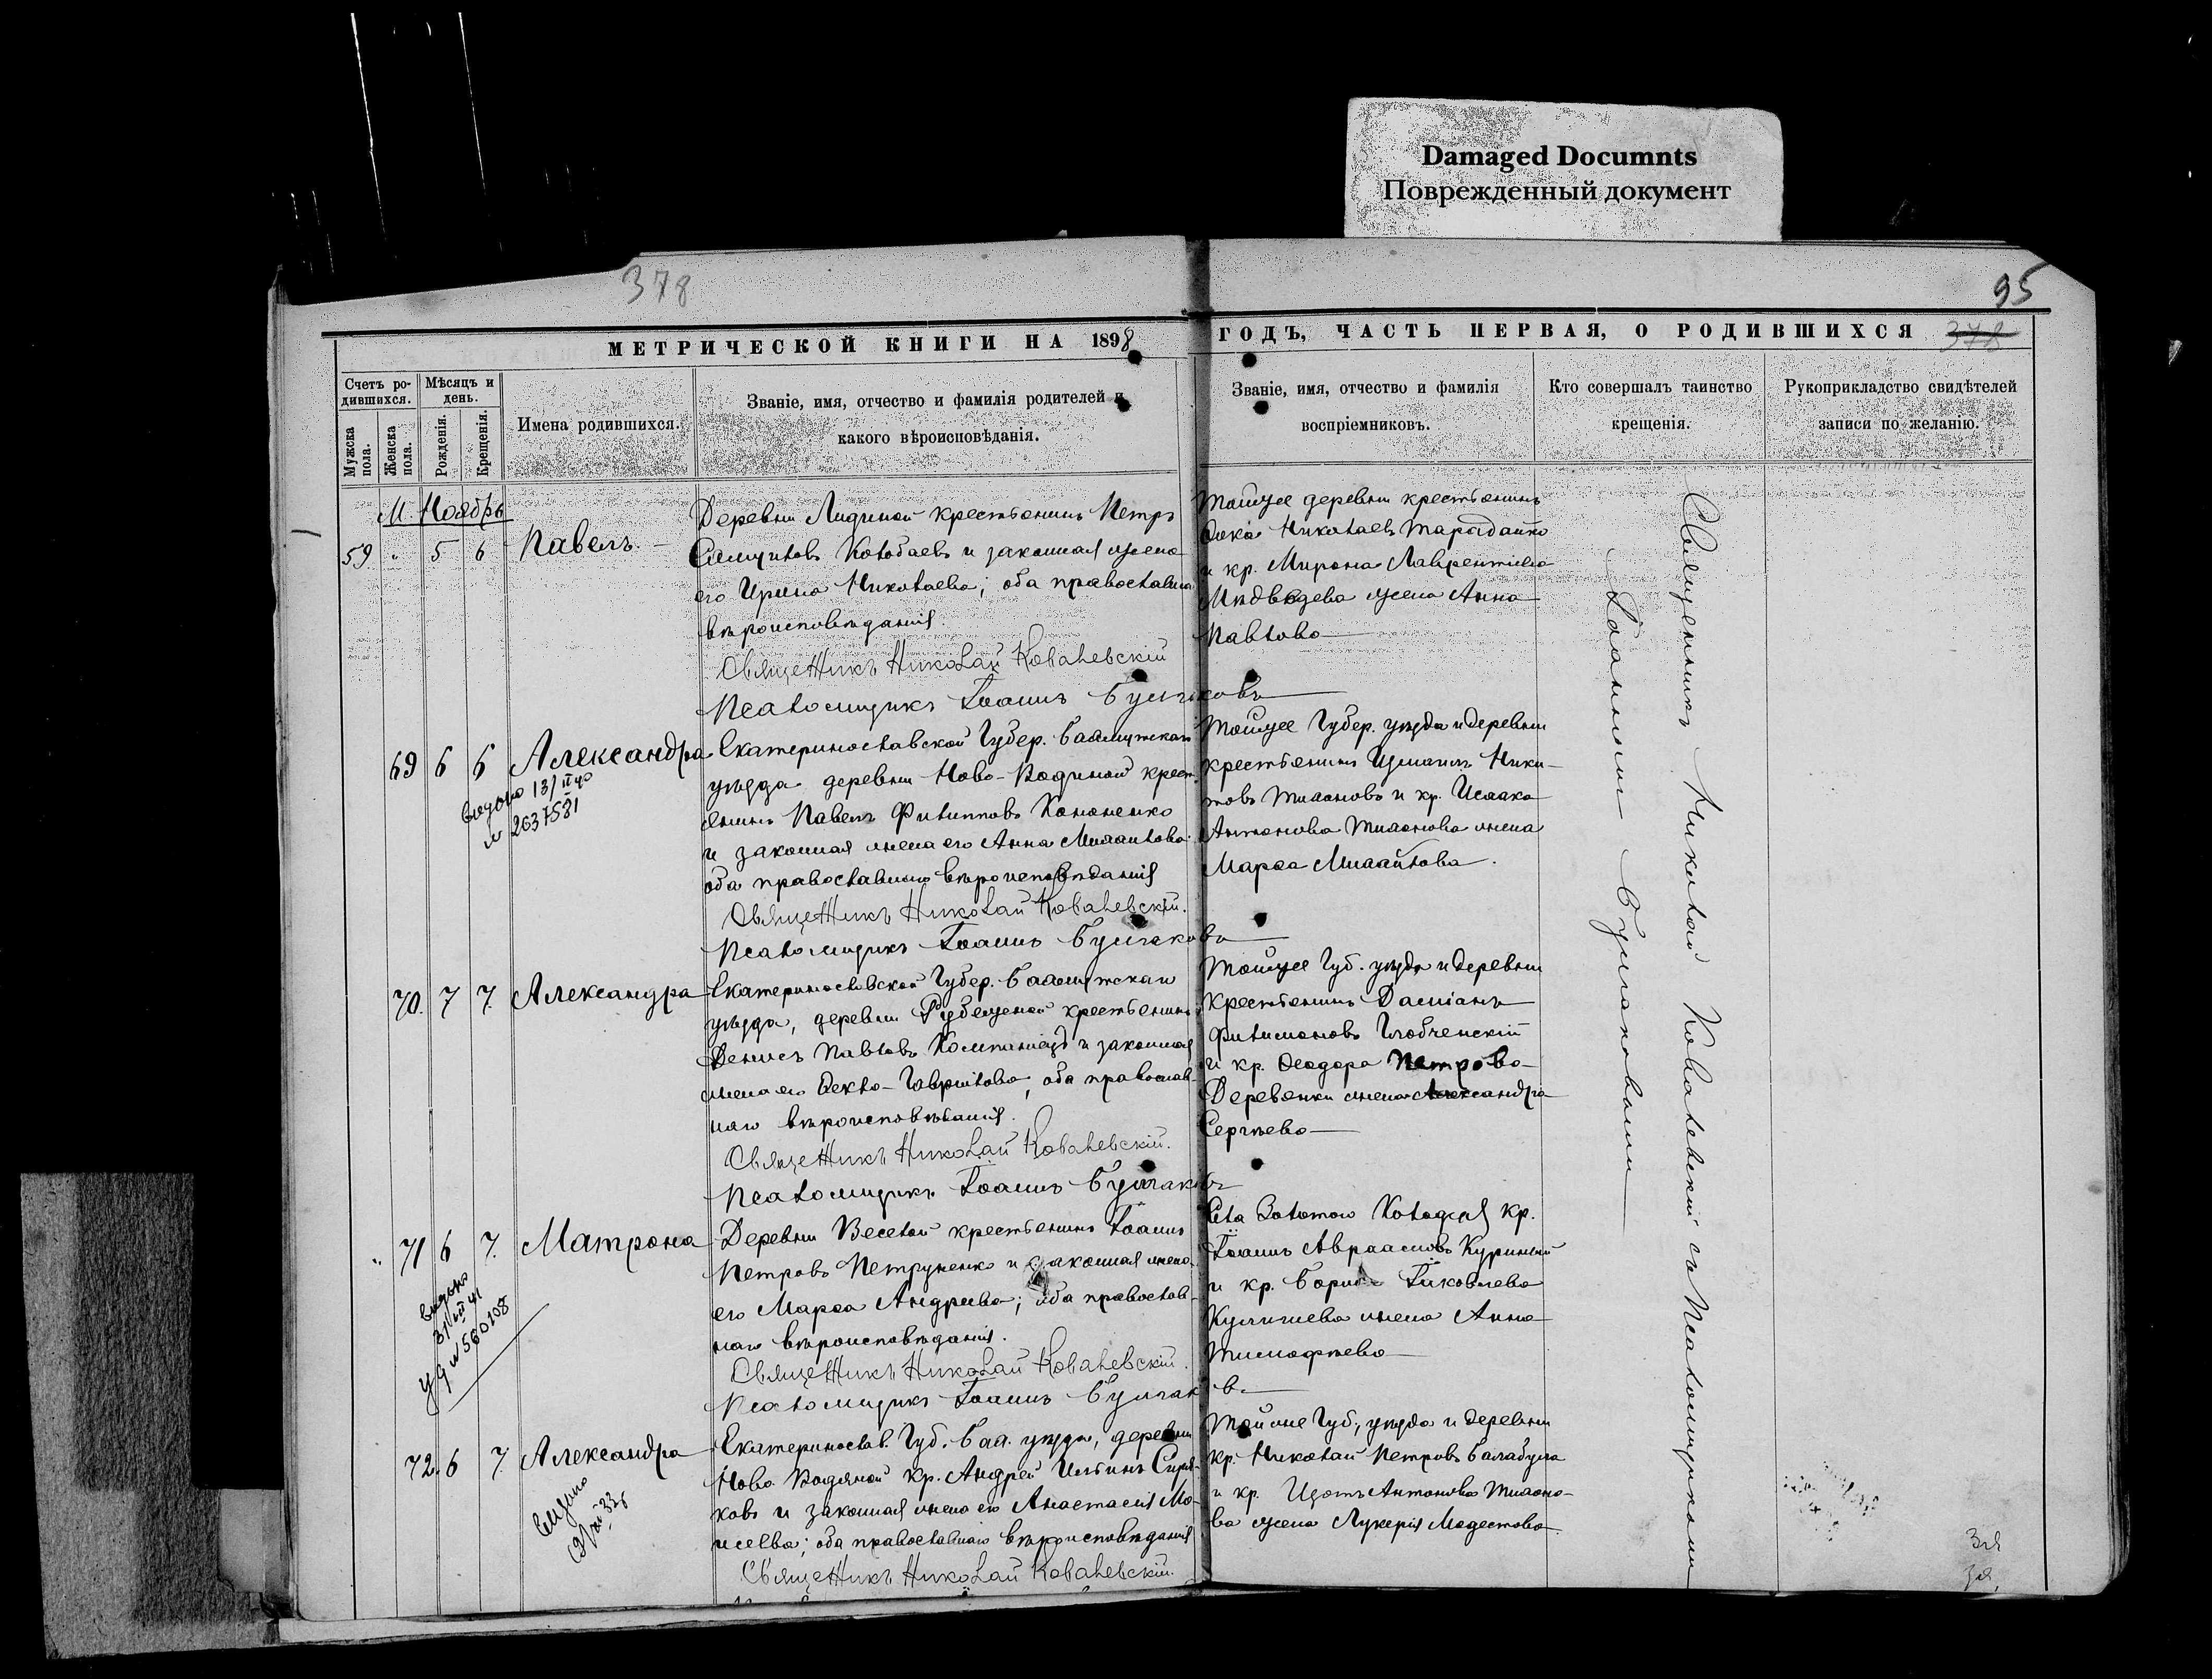 Damaged Documnts
Поврежденный документ
378
95
МЕТРИЧЕСКОЙ КНИГИ НА 1898
ГОДЪ, ЧАСТЬ ПЕРВАЯ, О РОДИВШИХСЯ 378
Счетъ ро-
дившихся.
Мѣсяцъ и
день.
Мужска
пола.
Женска
пола.
Рожденія.
Крещенія.
Имена родившихся.
Званіе, имя, отчество и фамилія родителей и
какого вѣроисповѣданія.
Званіе, имя, отчество и фамилія
воспріемниковъ.
Кто совершалъ таинство
крещенія.
Рукоприкладство свидѣтелей
записи по желанію.
М. Ноябрь
59 " 5 6 Павелъ.
Деревни Лидиной крестьянинъ Петръ
Колобаевъ и законная жена
его Ирина Николаева; оба православнаго
вѣроисповѣданія.
Священникъ Николай Ковалевскій
Псаломщикъ Іоаннъ Булгаковъ
Тойже деревни крестьянинъ
Николаевъ
и кр. Мирона Лаврентіева
Медвѣдева жена Анна
Павлова
69 6 6 Александра
выдано 13/II 40
№ 2637581
Екатеринославской Губер. Бахмутскаго
уѣзда деревни Ново-Водяной крест-
янинъ Павелъ Филипповъ Кононенко
и законная жена его Анна Михайлова
оба православнаго вѣроисповѣданія
Священникъ Николай Ковалевскій.
Псаломщикъ Іоаннъ Булгаковъ
Тойже Губер. уѣзда и деревни
крестьянинъ Измаилъ Ники-
товъ Тихоновъ и кр. Исаака
Антонова Тихонова жена
Марѳа Михайлова.
70. 7 7. Александра
Екатеринославской Губер. Бахмутскаго
уѣзда, деревни Рубежной крестьянинъ
Денисъ Павловъ Компаніецъ и законная
жена его Ѳекла Гаврилова, оба православ-
наго вѣроисповѣданія.
Священникъ Николай Ковалевскій.
Псаломщикъ Іоаннъ Булгаковъ
Тойже Губ. уѣзда и деревни
крестьянинъ Даміанъ
Филимоновъ
и кр. Ѳеодора Петрова
Деревянки жена Александра
Сергѣева
" 71 6 7. Матрона
выдано
31/III 41
№ 560108
Деревни Веселой крестьянинъ Іоаннъ
Петровъ Петруненко и законная жена
его Марѳа Андреева; оба православ-
наго вѣроисповѣданія.
Священникъ Николай Ковалевскій.
Псаломщикъ Іоаннъ Булгаковъ
Села Золотого Колодезя кр.
Іоаннъ Авраамовъ Куринный
и кр. Бориса Яковлева
жена Анна
Тимофѣева
72. 6 7. Александра
Выдано
Екатеринослав. Губ. Бах. уѣзда, деревни
Ново Водяной кр. Андрей Ильинъ
и законная жена его Анастасія Мо-
исеева; оба православнаго вѣроисповѣданія
Священникъ Николай Ковалевскій.
Той же Губ., уѣзда и деревни
кр. Николай Петровъ Балабуха
и кр. Антонова Тихоно-
ва жена Лукерія Модестова.
Священникъ Николай Ковалевскій съ Псаломщикомъ
Іоанномъ Булгаковымъ